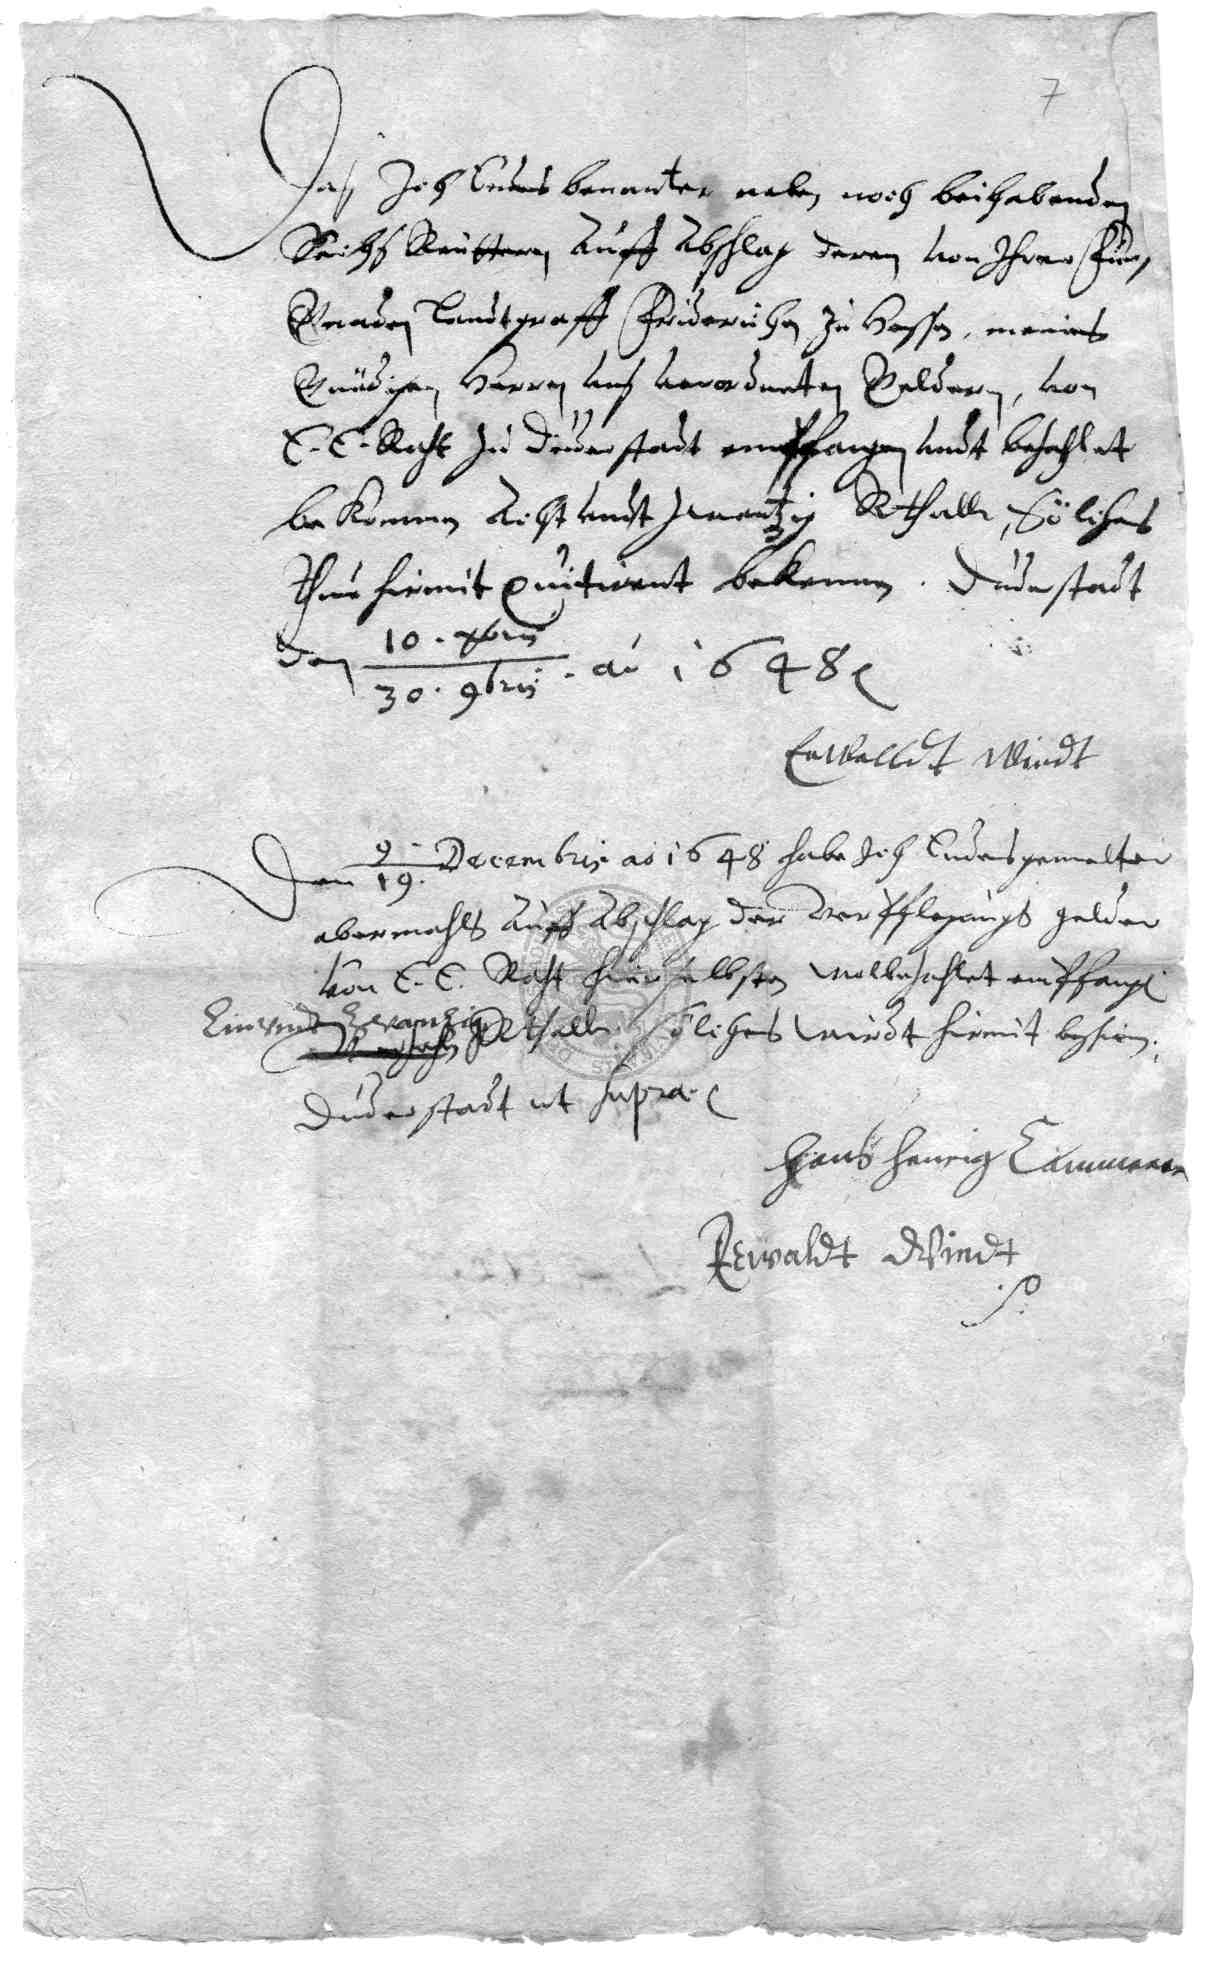 7
Daß Ich Endes benanter neben noch beihabenden
Sechs Reüttern Auff Abschlag deren von Ihrer Fürst
Gnaden Landtgraff Friderichen zu Hessen, meines
Gnädigen Herren unß verordneten Geldern, von
E. E. Raht zu Duderstadt empfangen undt bezahlet
bekommen Acht undt zwantzig Rthall., Söliches
Thue hirmit quitirent bekennen. Duderstadt
den 10. Xbris / 30. 9bris. ao 1648
Ewalldt Windt
Den 9. / 19. Decembris ao 1648 habe Ich Endesgemelter
abermahls Auff Abschlag der Verpflegungs gelder
Von E. E. Raht hierselbsten wollbezahlet empfangen
Ein undt Zwanzig Rthall. söliches wirdt hirmit beschein.
Duderstadt ut supra
Hans Henrig Cammerer
Ewaldt Windt